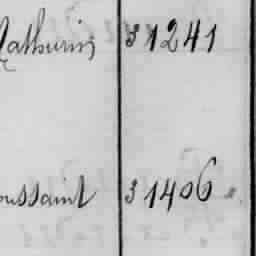 Mathurin 31241
oussaint 31406 "